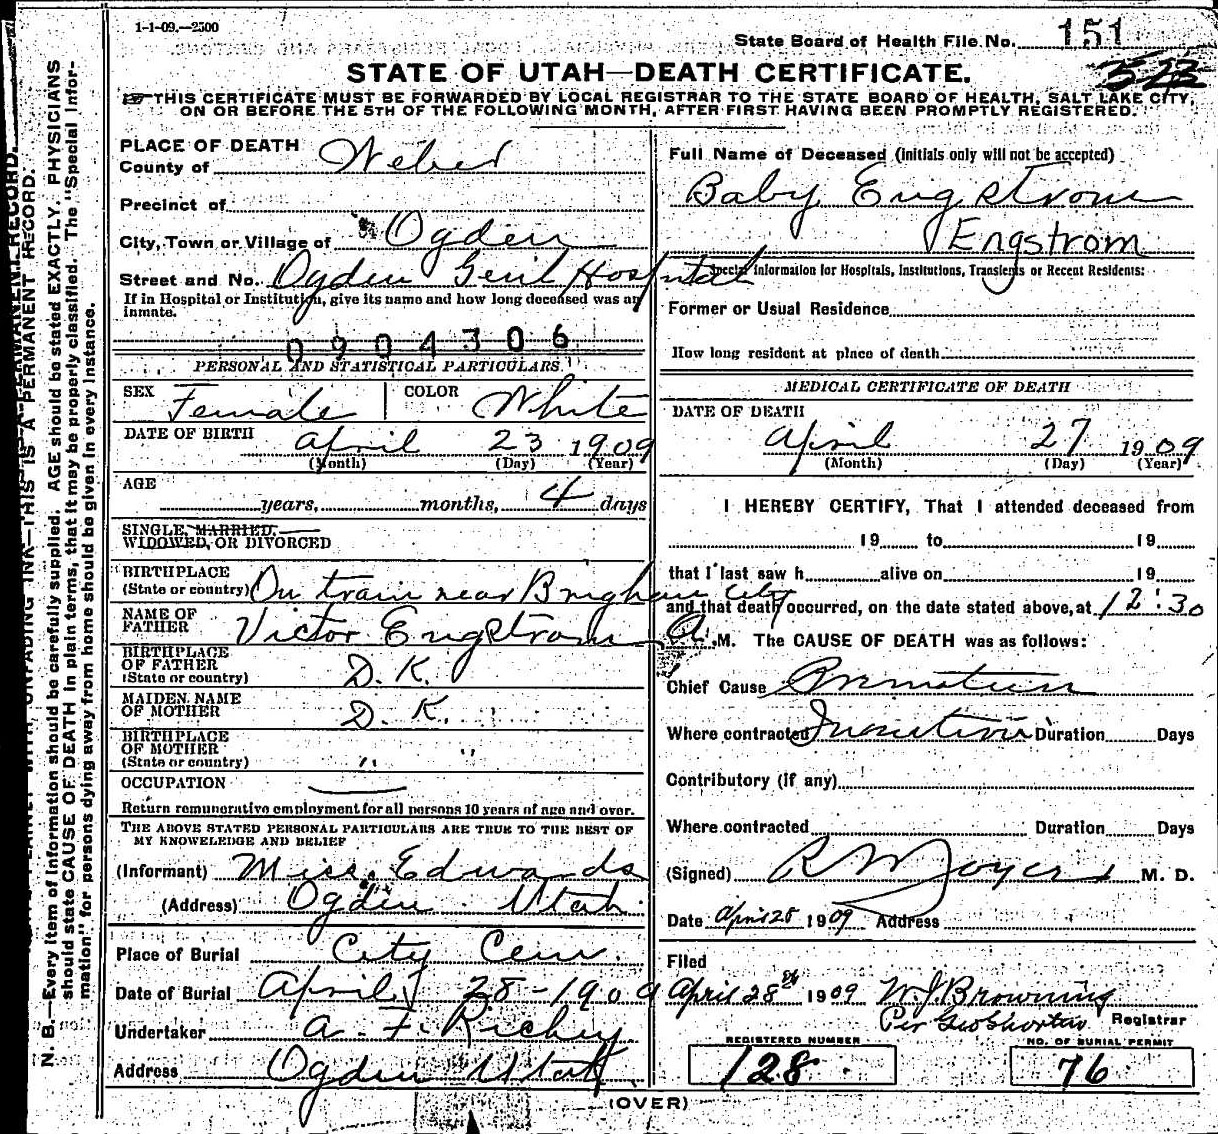 1-1-09.—2500
State Board of Health File No. 151
523
STATE OF UTAH—DEATH CERTIFICATE.
THIS CERTIFICATE MUST BE FORWARDED BY LOCAL REGISTRAR TO THE STATE BOARD OF HEALTH, SALT LAKE CITY,
ON OR BEFORE THE 5TH OF THE FOLLOWING MONTH, AFTER FIRST HAVING BEEN PROMPTLY REGISTERED.
PLACE OF DEATH
County of Weber
Precinct of
City, Town or Village of Ogden
Street and No. Ogden Genl Hospital
If in Hospital or Institution, give its name and how long deceased was an
inmate.
0904306
PERSONAL AND STATISTICAL PARTICULARS
SEX Female COLOR White
DATE OF BIRTH April 23 1909
(Month) (Day) (Year)
AGE years, months, 4 days
SINGLE, MARRIED,
WIDOWED, OR DIVORCED
BIRTHPLACE
(State or country) On train near Brigham City
NAME OF
FATHER Victor Engstrom
BIRTHPLACE
OF FATHER
(State or country) D. K.
MAIDEN NAME
OF MOTHER D. K.
BIRTHPLACE
OF MOTHER
(State or country) " "
OCCUPATION
Return remunerative employment for all persons 10 years of age and over.
THE ABOVE STATED PERSONAL PARTICULARS ARE TRUE TO THE BEST OF
MY KNOWLEDGE AND BELIEF
(Informant) Miss. Edwards
(Address) Ogden Utah.
Place of Burial City Cem.
Date of Burial April 28-1909
Undertaker A. F. Richey
Address Ogden Utah
Full Name of Deceased (Initials only will not be accepted)
Baby Engstrom
Engstrom
Special information for Hospitals, Institutions, Transients or Recent Residents:
Former or Usual Residence
How long resident at place of death
MEDICAL CERTIFICATE OF DEATH
DATE OF DEATH
April 27 1909
(Month) (Day) (Year)
I HEREBY CERTIFY, That I attended deceased from
19 to 19
that I last saw h alive on 19
and that death occurred, on the date stated above, at 12:30
A. M. The CAUSE OF DEATH was as follows:
Chief Cause Premature
Where contracted Inanition Duration Days
Contributory (if any)
Where contracted Duration Days
(Signed) R M Joyce M. D.
Date April 28 1909 Address
Filed
April 28th 1909 W. J. Browning
Per Geo Shorten Registrar
REGISTERED NUMBER
128
NO. OF BURIAL PERMIT
76
(OVER)
N. B.—Every item of information should be carefully supplied. AGE should be stated EXACTLY. PHYSICIANS
should state CAUSE OF DEATH in plain terms, that it may be properly classified. The "Special Infor-
mation" for persons dying away from home should be given in every instance.
UNFADING INK—THIS IS A PERMANENT RECORD.